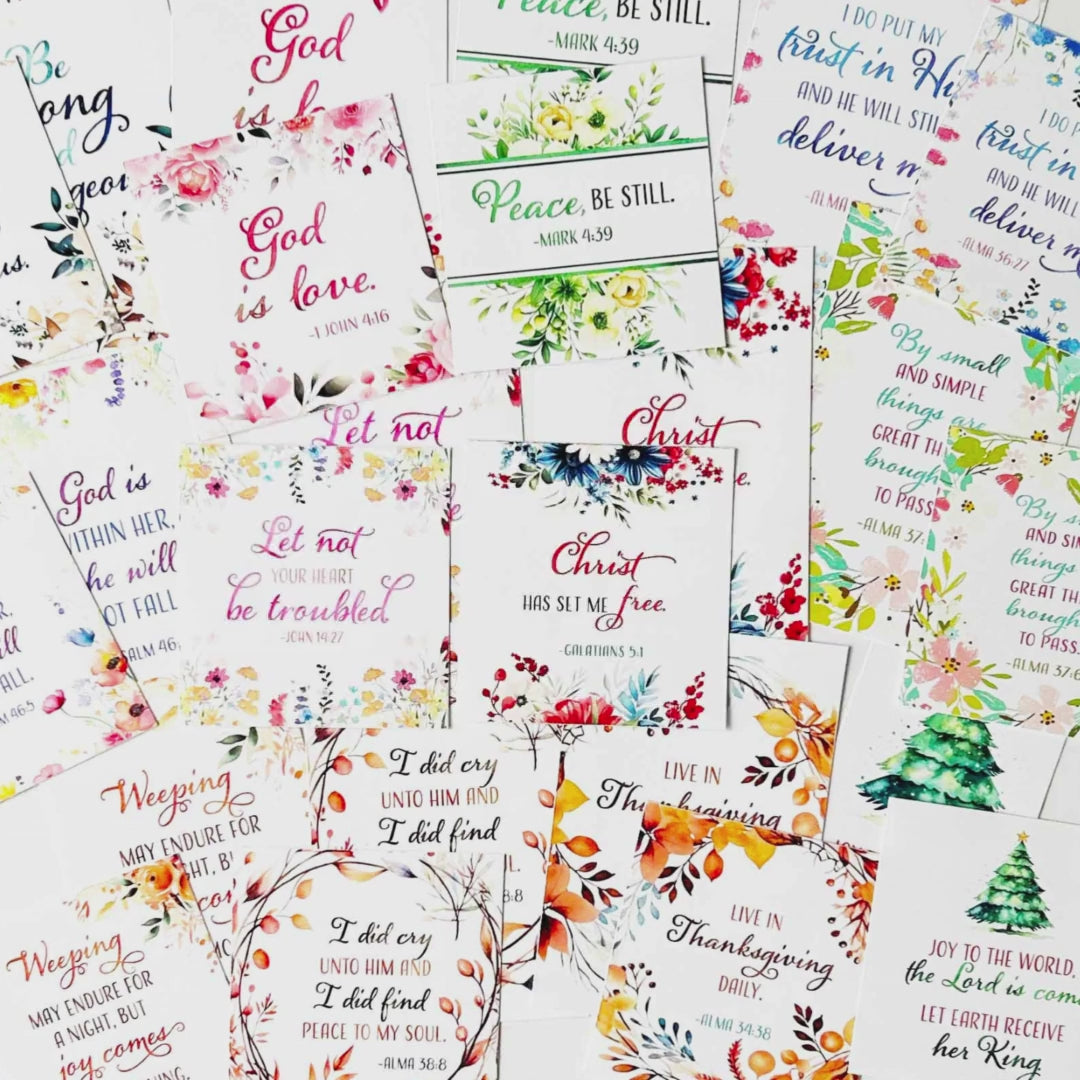 Be
ong
geou
us.
God
is
Peace, BE STILL.
-MARK 4:39
I DO PUT MY
trust in Hi
AND HE WILL STIL
deliver m
-ALMA
I DO P
trust in
AND HE WILL
deliver m
-ALMA 36:27
God
is love.
-1 JOHN 4:16
Peace, BE STILL.
-MARK 4:39
By small
AND SIMPLE
things are
GREAT TH
brough
TO PASS
-ALMA 37:
By s
AND SIM
things
GREAT TH
brough
TO PASS
-ALMA 37:6
God is
ITHIN HER,
he will
OT FALL
ALM 46:
R,
ll
ALL.
M 46:5
Let not
Let not
YOUR HEART
be troubled
-JOHN 14:27
Christ
e.
Christ
HAS SET ME free.
-GALATIANS 5:1
Weeping
MAY ENDURE FOR
HT, B
I did cry
UNTO HIM AND
I did find
8:8
LIVE IN
Thanksgiving
Weeping
MAY ENDURE FOR
A NIGHT, BUT
joy comes
NING.
I did cry
UNTO HIM AND
I did find
PEACE TO MY SOUL.
-ALMA 38:8
LIVE IN
Thanksgiving
DAILY.
-ALMA 34:38
JOY TO THE WORLD,
the Lord is com
LET EARTH RECEIVE
her King